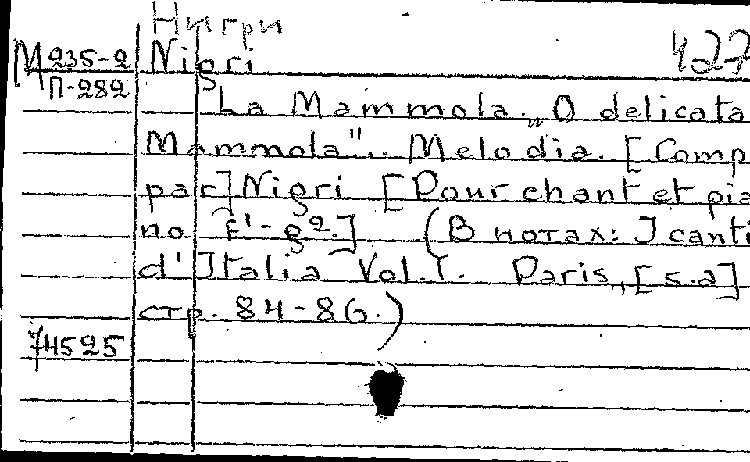 Нигри
М 235-2 Nigri 427
П-282
La Mammola. „O delicata
Mammola". Melodia. [Comp.
par] Nigri [Pour chant et pia
no f¹-g².] (В нотах: I canti
d'Italia Vol. I. Paris, [s.a]
стр. 84-86.)
74525